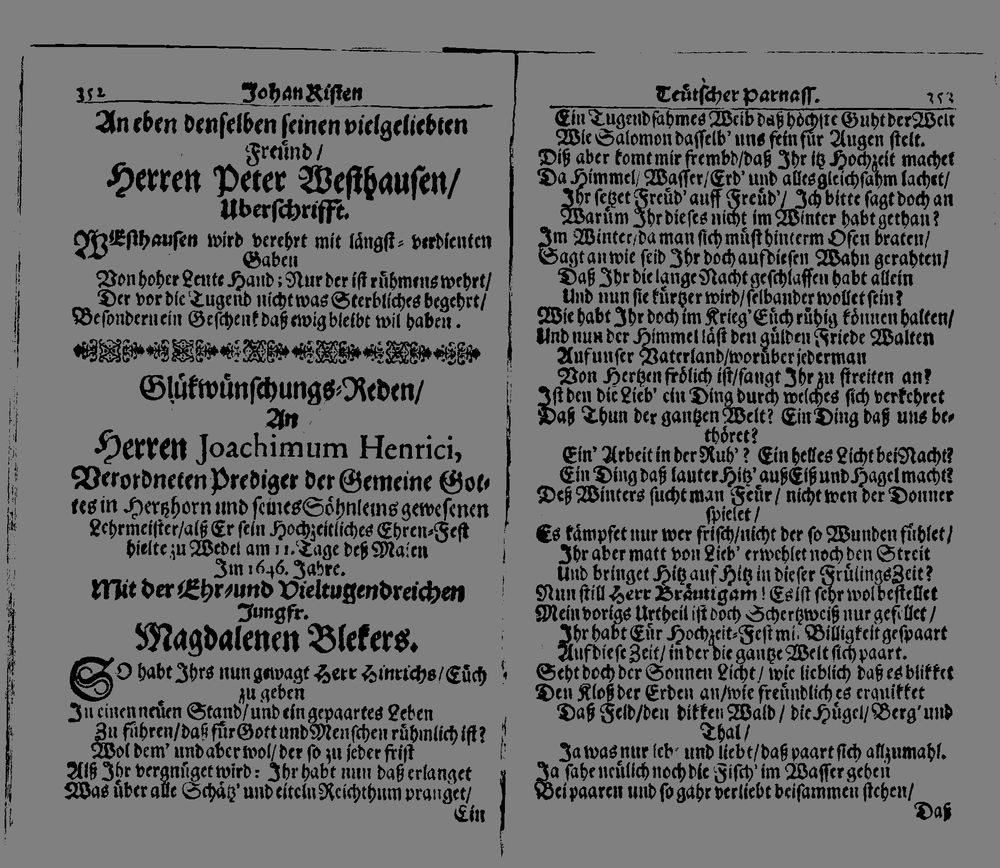 352 Johan Risten
An eben denselben seinen vielgeliebten
Freünd/
Herren Peter Westhausen/
Uberschrifft.
WEsthausen wird verehrt mit längst-verdienten
Gaben
Von hoher Leute Hand; Nur der ist rühmens wehrt/
Der vor die Tugend nicht was Sterbliches begehrt/
Besondern ein Geschenk daß ewig bleibt wil haben.
Glükwünschungs-Reden/
An
Herren Joachimum Henrici,
Verordneten Prediger der Gemeine Got-
tes in Hertzhorn und seines Söhnleins gewesenen
Lehrmeister/alß Er sein Hochzeitliches Ehren-Fest
hielte zu Wedel am 11. Tage deß Maien
Im 1646. Jahre.
Mit der Ehr-und Vieltugendreichen
Jungfr.
Magdalenen Blekers.
SO habt Ihrs nun gewagt Herr Hinrichs/Eüch
zu geben
In einen neüen Stand/und ein gepaartes Leben
Zu führen/daß für Gott und Menschen rühmlich ist?
Wol dem' und aber wol/der so zu jeder frist
Alß Ihr vergnüget wird: Ihr habt nun daß erlanget
Was über alle Schätz' und eiteln Reichthum pranget/
Ein
Teütscher Parnass. 353
Ein Tugendsahmes Weib daß höchste Guht der Welt
Wie Salomon dasselb' uns fein für Augen stelt.
Diß aber komt mir frembd/daß Ihr itz Hochzeit machet
Da Himmel/Wasser/Erd' und alles gleichsahm lachet/
Ihr setzet Freüd' auff Freüd'/ Ich bitte sagt doch an
Warüm Ihr dieses nicht im Winter habt gethan?
Im Winter/da man sich müst hinterm Ofen braten/
Sagt an wie seid Ihr doch auf diesen Wahn gerahten/
Daß Ihr die lange Nacht geschlaffen habt allein
Und nun sie kürtzer wird/selbander wollet sein?
Wie habt Ihr doch im Krieg' Eüch rühig können halten/
Und nun der Himmel läst den gülden Friede Walten
Auf unser Vaterland/worüber jederman
Von Hertzen frölich ist/fangt Ihr zu streiten an?
Ist den die Lieb' ein Ding durch welches sich verkehret
Daß Thun der gantzen Welt? Ein Ding daß uns be-
thöret?
Ein' Arbeit in der Ruh'? Ein helles Licht bei Nacht?
Ein Ding daß lauter Hitz' auß Eiß und Hagel macht?
Deß Winters sucht man Feür/ nicht wen der Donner
spielet/
Es kämpfet nur wer frisch/nicht der so Wunden fühlet/
Ihr aber matt von Lieb' erwehlet noch den Streit
Und bringet Hitz auf Hitz in dieser Frülings Zeit?
Nun still Herr Bräutigam! Es ist sehr wol bestellet
Mein vorigs Urtheil ist doch Schertzweiß nur gefellet/
Ihr habt Eür Hochzeit-Fest mit Billigkeit gespaart
Auf diese Zeit/in der die gantze Welt sich paart.
Seht doch der Sonnen Licht/ wie lieblich daß es blikket
Den Kloß der Erden an/wie freundlich es erquikket
Daß Feld/den dikken Wald/ die Hügel/Berg' und
Thal/
Ja was nur leb' und liebt/daß paart sich allzumahl.
Ja sahe neülich noch die Fisch' im Wasser gehen
Bei paaren und so gahr verliebt beisammen stehen/
Daß